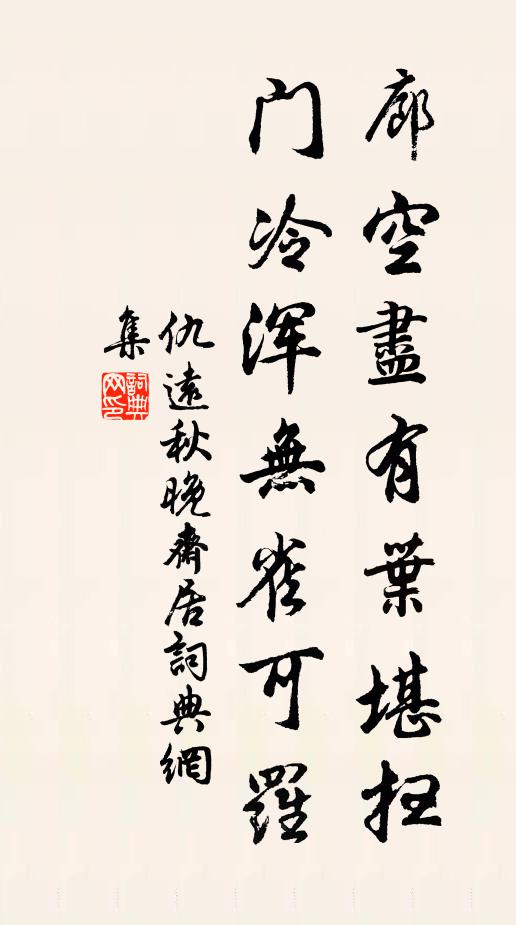 廊空盡有葉堪掃
門冷渾無雀可羅
仇遠秋晚齋居詞典網
集
詞典網印